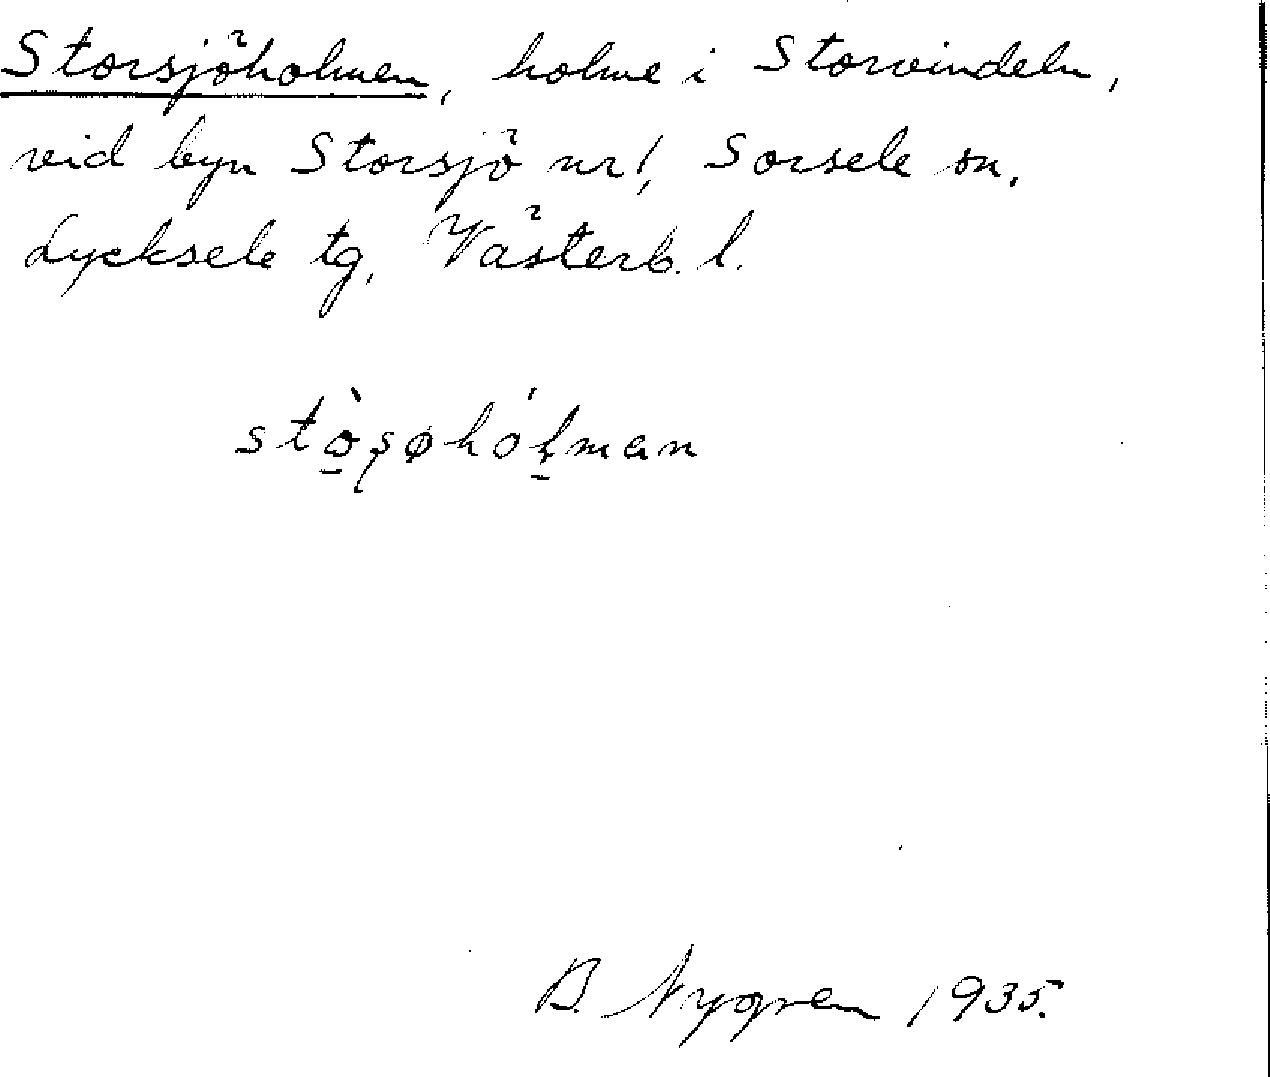 Storsjöholmen, holme i Storvindeln,
vid byn Storsjö nr 1, Sorsele sn.
Lycksele tg, Västerb. l.
stò̠ʂøhóɫ̠man
B. Nygren 1935.